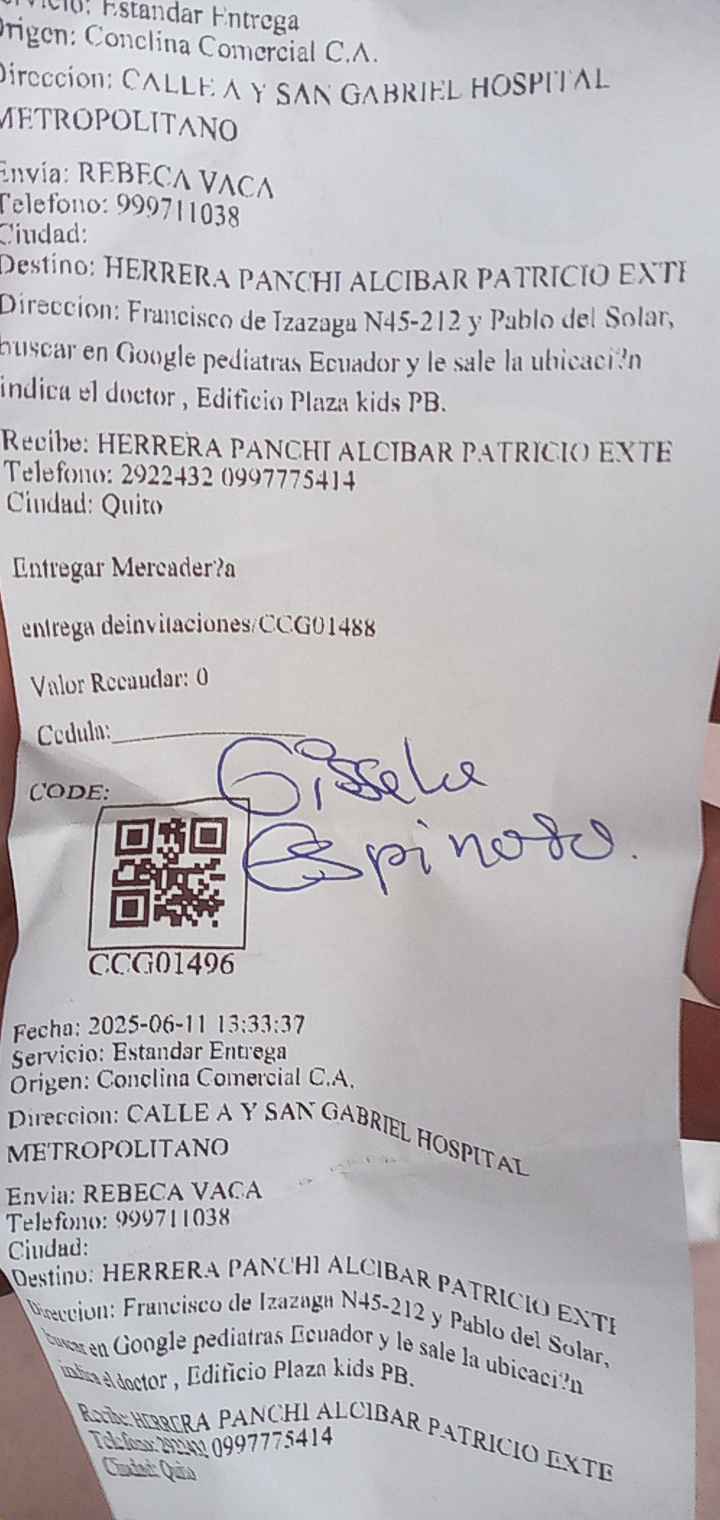 Servicio: Estandar Entrega
Origen: Conclina Comercial C.A.
Direccion: CALLE A Y SAN GABRIEL HOSPITAL
METROPOLITANO
Envia: REBECA VACA
Telefono: 999711038
Ciudad:
Destino: HERRERA PANCHI ALCIBAR PATRICIO EXTE
Direccion: Francisco de Izazaga N45-212 y Pablo del Solar,
buscar en Google pediatras Ecuador y le sale la ubicaci?n
indica el doctor , Edificio Plaza kids PB.
Recibe: HERRERA PANCHI ALCIBAR PATRICIO EXTE
Telefono: 2922432 0997775414
Ciudad: Quito
Entregar Mercader?a
entrega deinvitaciones/CCG01488
Valor Recaudar: 0
Cedula:
Gissela
Espinoso.
CODE:
CCG01496
Fecha: 2025-06-11 13:33:37
Servicio: Estandar Entrega
Origen: Conclina Comercial C.A.
Direccion: CALLE A Y SAN GABRIEL HOSPITAL
METROPOLITANO
Envia: REBECA VACA
Telefono: 999711038
Ciudad:
Destino: HERRERA PANCHI ALCIBAR PATRICIO EXTE
Direccion: Francisco de Izazaga N45-212 y Pablo del Solar,
buscar en Google pediatras Ecuador y le sale la ubicaci?n
indica el doctor , Edificio Plaza kids PB.
Recibe: HERRERA PANCHI ALCIBAR PATRICIO EXTE
Telefono: 2922432 0997775414
Ciudad: Quito